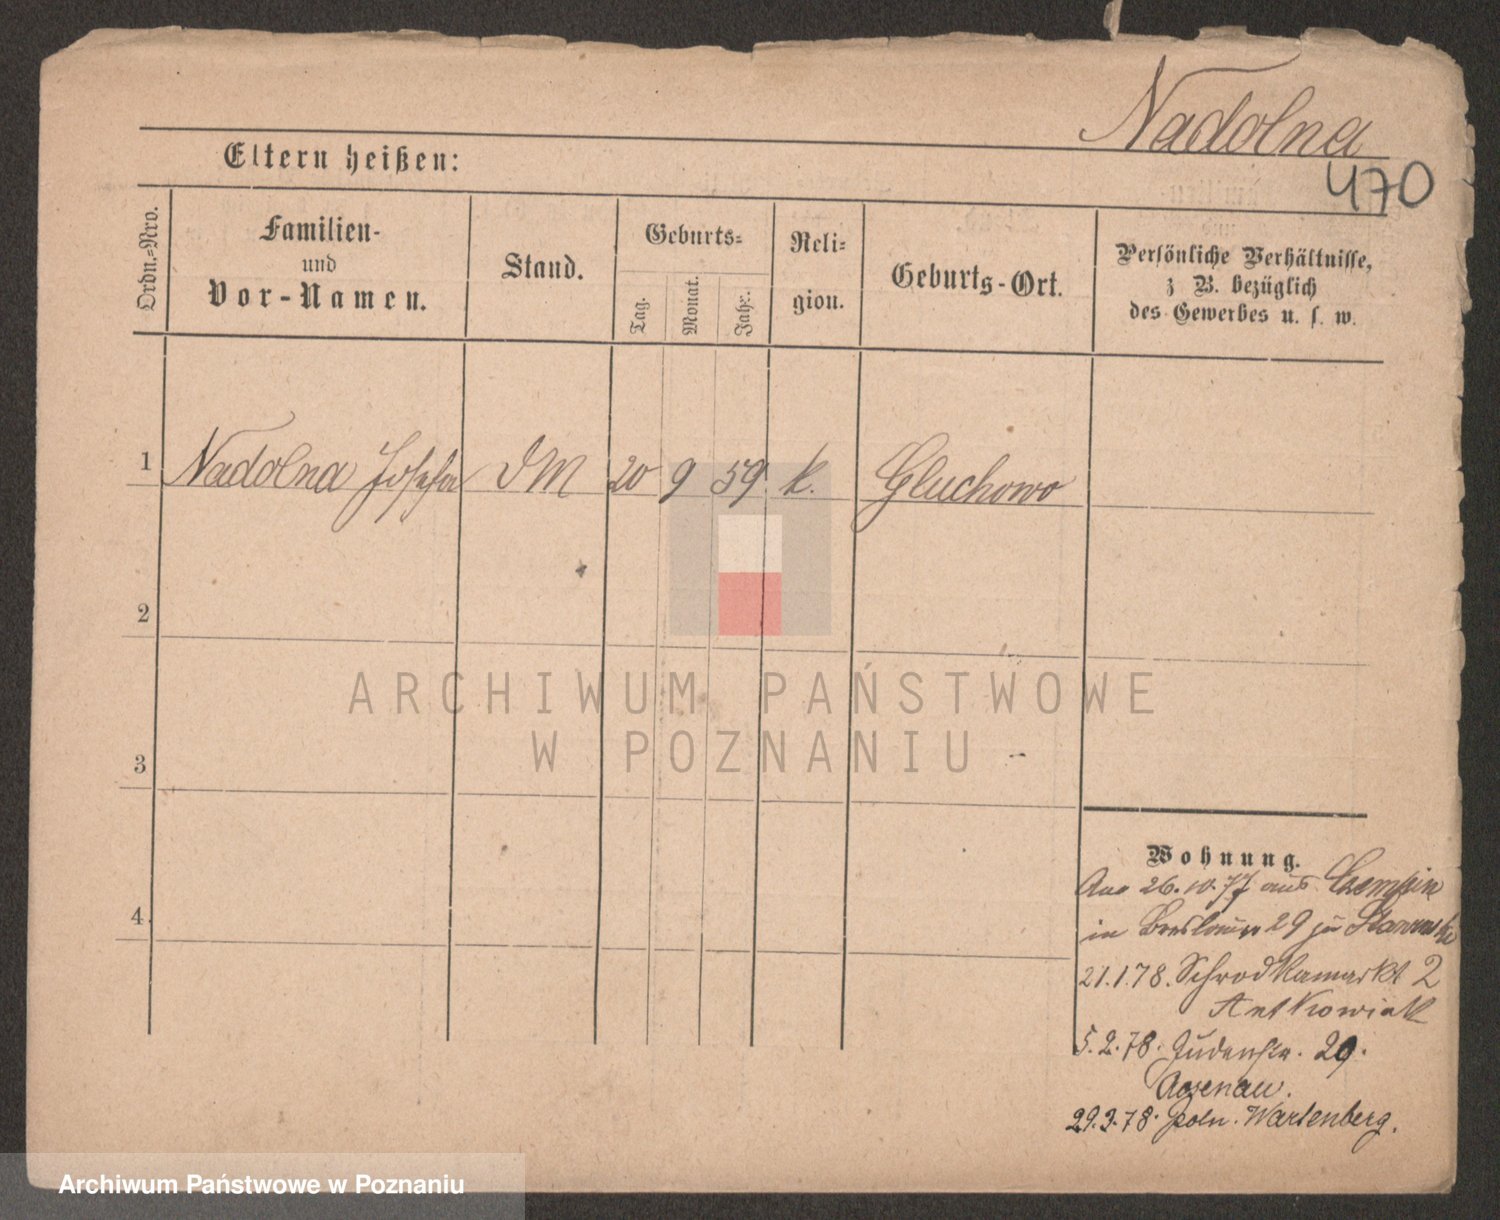 Nadolna
470
Eltern heißen:
Ordn.=Nro.
Familien-
und
Vor-Namen.
Stand.
Geburts=
Tag.
Monat.
Jahr.
Reli=
gion.
Geburts-Ort.
Persönliche Verhältnisse,
z B. bezüglich
des Gewerbes u. s. w.
1 Nadolna Josefa DM 20 9 59 k. Gluchowo
2
3
4.
ARCHIWUM PAŃSTWOWE
W POZNANIU
Wohnung.
26.10.77 aus Czempin
in Breslauer 29 zu
21.1.78. Schrodkamarkt 2
Antkowiak
5.2.78. Judenstr. 29.
29.3.78. Poln. Wartenberg.
Archiwum Państwowe w Poznaniu